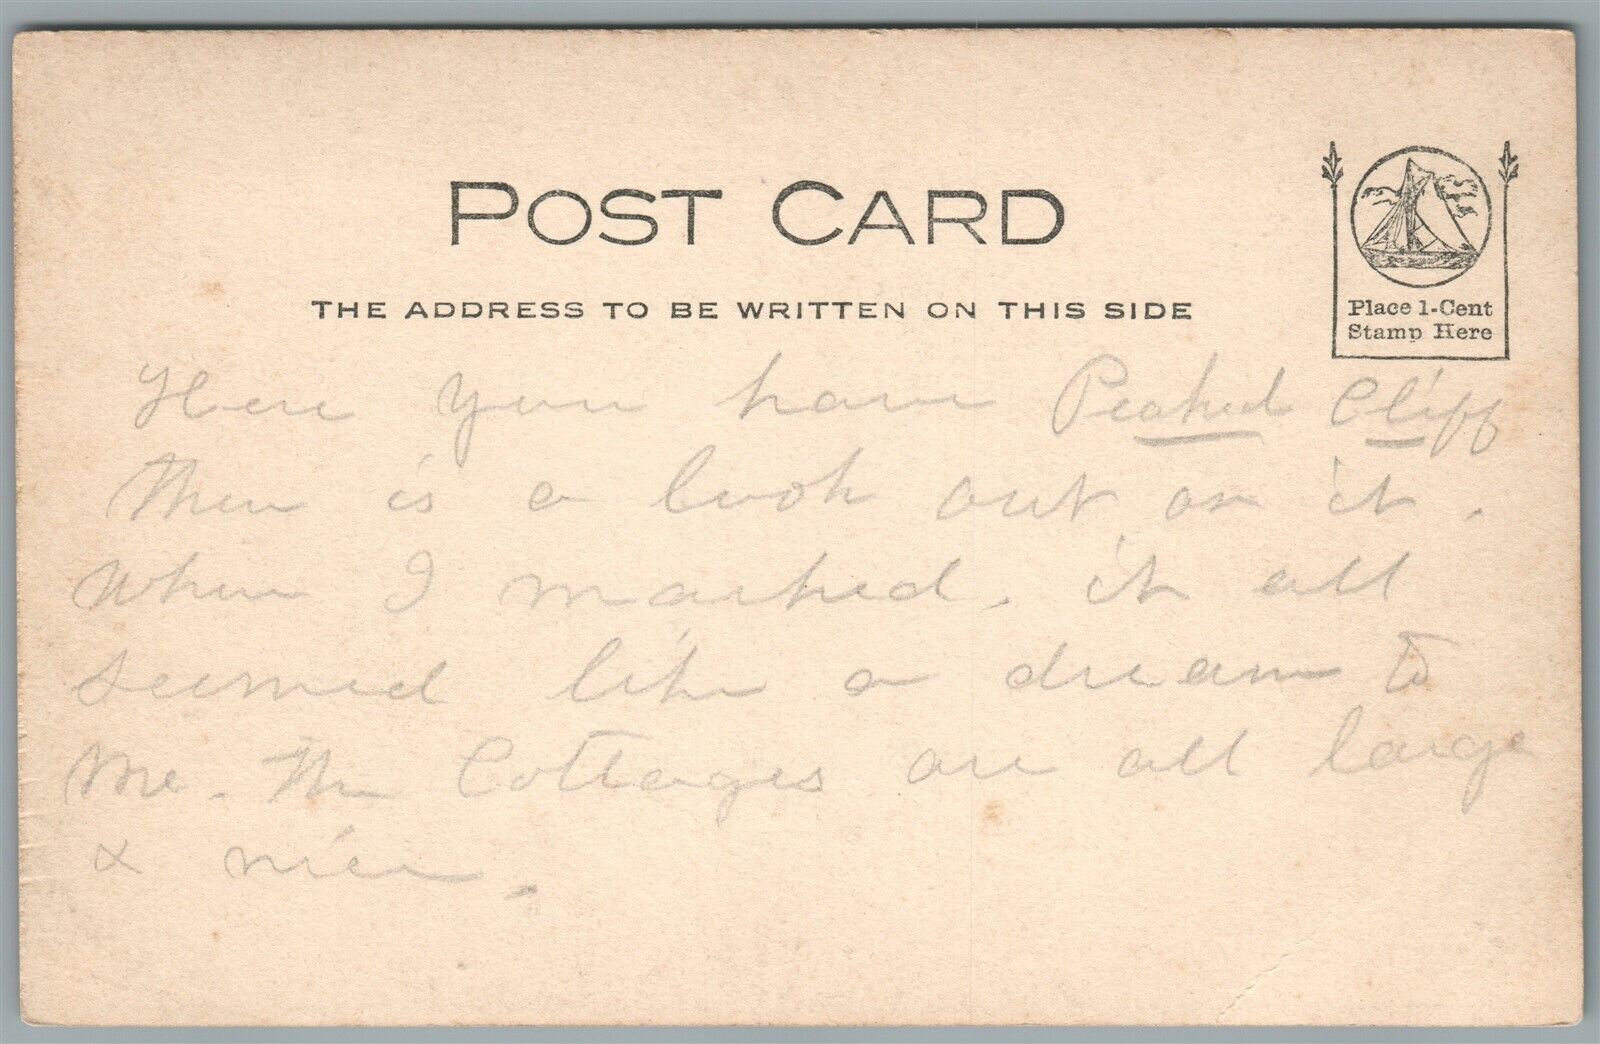 POST CARD
THE ADDRESS TO BE WRITTEN ON THIS SIDE
Place 1-Cent
Stamp Here
Here you have Peaked Cliff
There is a look out on it.
When I marked, it all
seemed like a dream to
me. The Cottages are all large
& nice.